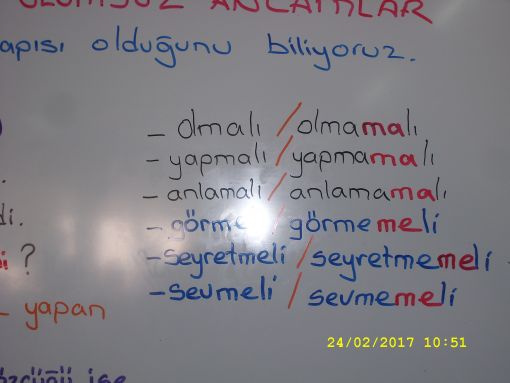 ANLATIMLAR
apısı olduğunu biliyoruz.
- olmalı / olmamalı
- yapmalı / yapmamalı
- anlamalı / anlamamalı
di. - görme / görmemeli
? - seyretmeli / seyretmemeli
- yapan - sevmeli / sevmemeli
24/02/2017 10:51
ise